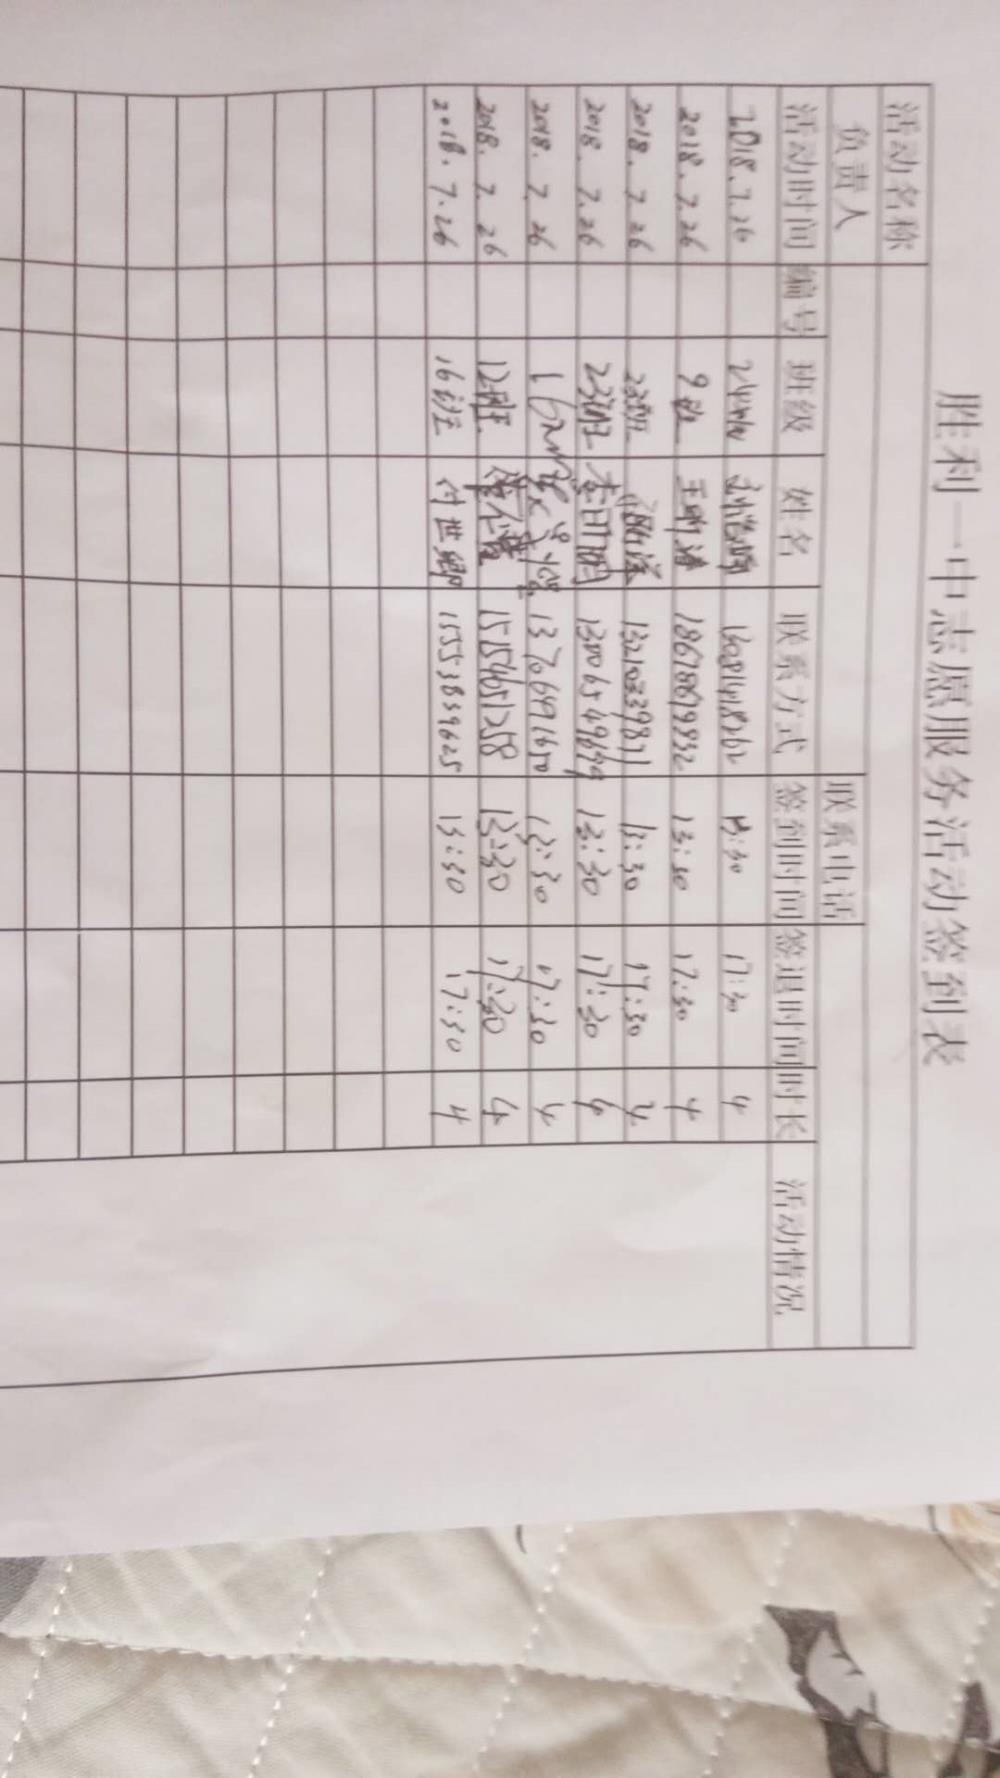 胜利一中志愿服务活动签到表
活动名称
负责人 联系电话
活动时间 编号 班级 姓名 联系方式 签到时间 签退时间 时长 活动情况
2018.7.26 13:30 17:30 4
2018.7.26 9班 18678679932 13:30 17:30 4
2018.7.26 23班 13210339871 13:30 17:30 4
2018.7.26 23班 李日明 13006549699 13:30 17:30 4
2018.7.26 16 13706691650 13:30 17:30 4
2018.7.26 12班 15754651258 13:30 17:30 4
2018.7.26 16班 付世卿 15553839625 13:30 17:30 4